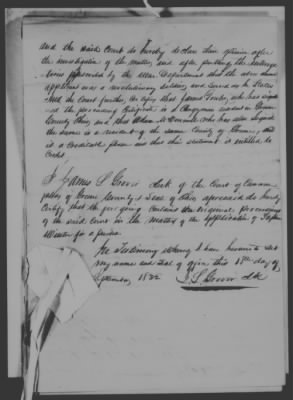 and the said Court do hereby declare their opinion after
the investigation of the matter, and after putting the interroga
tories prescribed by the War Department that the above named
applicant was a revolutionary soldier and served as he States
And the Court further Certifies that James Towler who has signed
the preceding Certificate is a Clergyman resident in Greene
County Ohio, and that Adam McConnell who has also signed
the same is a resident of the same County of Greene, and
is a Credible person and that their statement is entitled to
Credit
I James S Grover Clerk of the Court of Common
pleas of Greene County & State of Ohio aforesaid do hereby
Certify that the foregoing Contains the original proceedings
of the said Court in the matter of the application of
for a pension
In Testimony Whereof I have hereunto set
my name and Seal of office this 18th day of
September 1832
J S Grover Clk